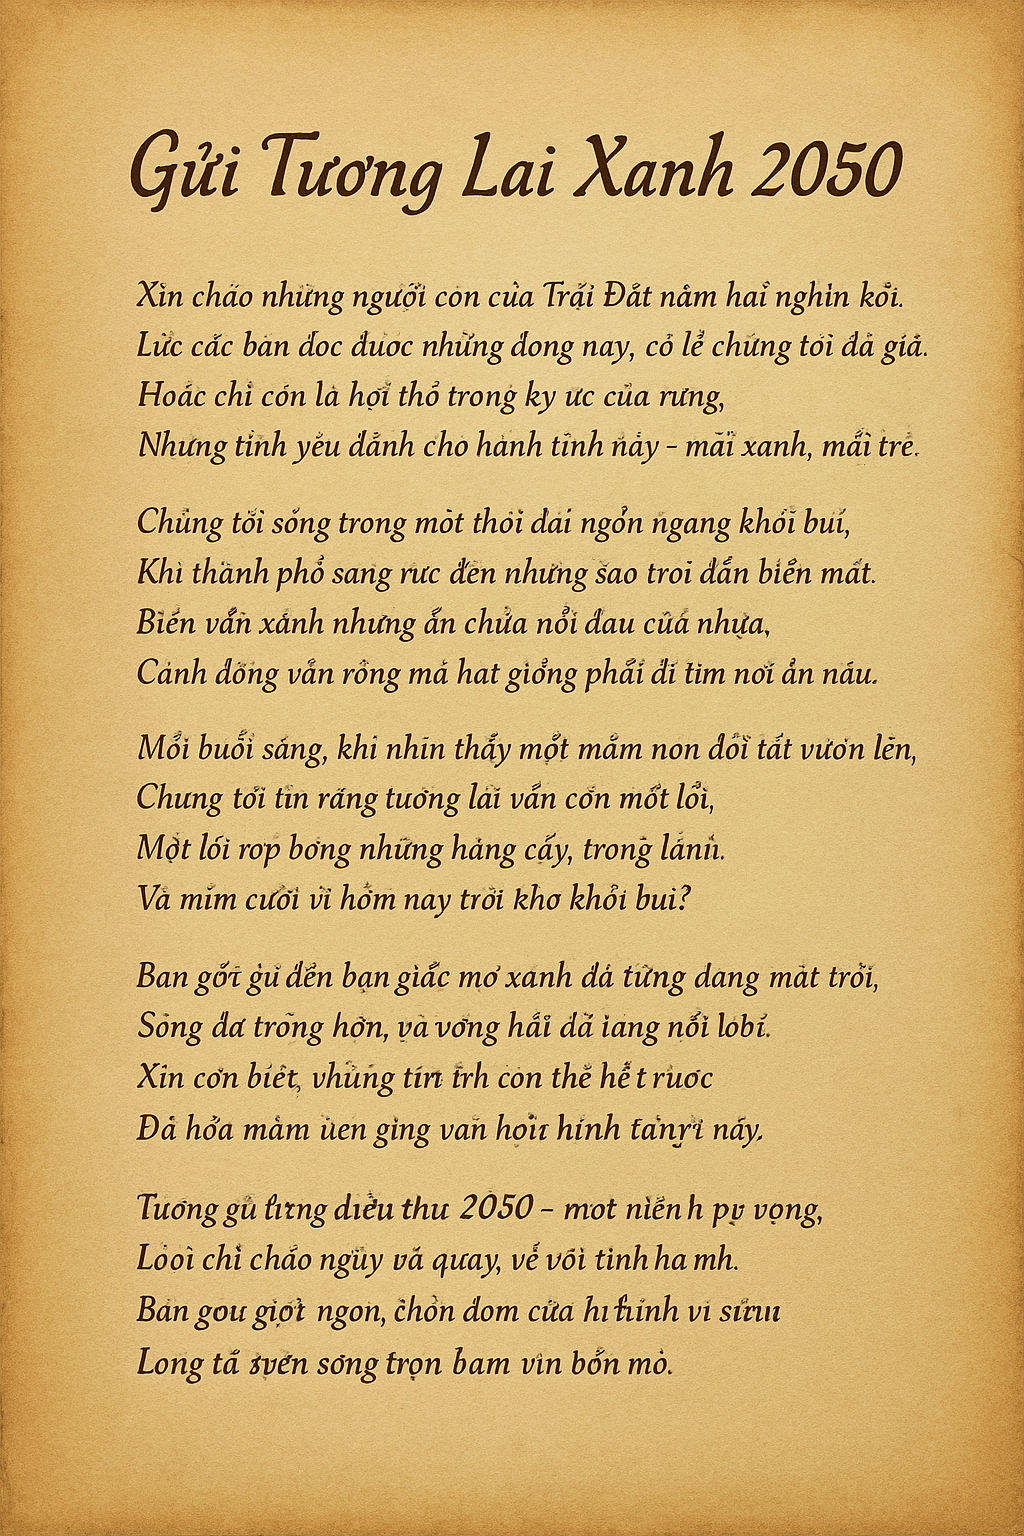 Gửi Tương Lai Xanh 2050
Xin chão những người con của Trái Đất năm haỉ nghìn kỏi.
Lức các bản đoc đuơc những dong nay, cỏ lẽ chứng tới đả giả.
Hoác chỉ cón là hơi thở trong ky ưc của rưng,
Nhưng tỉnh yêu dảnh cho hảnh tỉnh nảy – mãi xanh, mãi trẻ.
Chúng tôi sống trong mòt thòi đai ngổn ngang khói bui,
Khi thành phố sang rưc đèn nhưng sao troi dẫn biến mất.
Biến vẫn xánh nhưng ẩn chứa nỗi đau củả nhựa,
Cánh đồng vẫn rộng mả hat giống phải đi tim nơi ẩn náu.
Mỗi buổi sáng, khi nhin thấy một mầm non đôi tất vươn lên,
Chưng tôi tin rắng tương lai vấn cón mốt lối,
Một lối rợp bơng những hàng cấy, trong lánh.
Và mỉm cười vì hôm nay trời kho khỏi bui?
Ban gởi đến bạn giấc mơ xanh đả từng dang màt trời,
Sòng trong hơn, và vong hải đã nỗi
Xin cơn biết, con thế hết ruơc
Đả hỏa màm ging van hính náy.
Tương thư 2050 – mot vọng,
chỉ chảo và quay, về vôi tinh ha mh.
Bản ngon, chòn dom cứa vi
Long tả song trọn bam vin bốn mò.